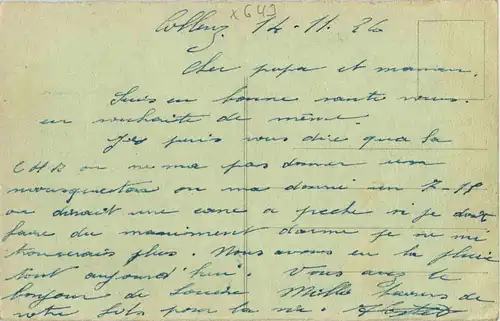 x649
Coblenz 14-11.26
Cher papa et maman.
Suis en bonne santé vous
en souhaite de même.
Je puis vous dire qua la
C H R on ne ma pas donner un
mousqueton on ma donné un 7-15
on dirait une cane a peche si je doit
faire du maniement darme je ne mi
trouverais plus. Nous avons eu la pluie
tout aujourd'hui. Vous avez le
bonjour de Mille baisers de
votre fils pour la vie.